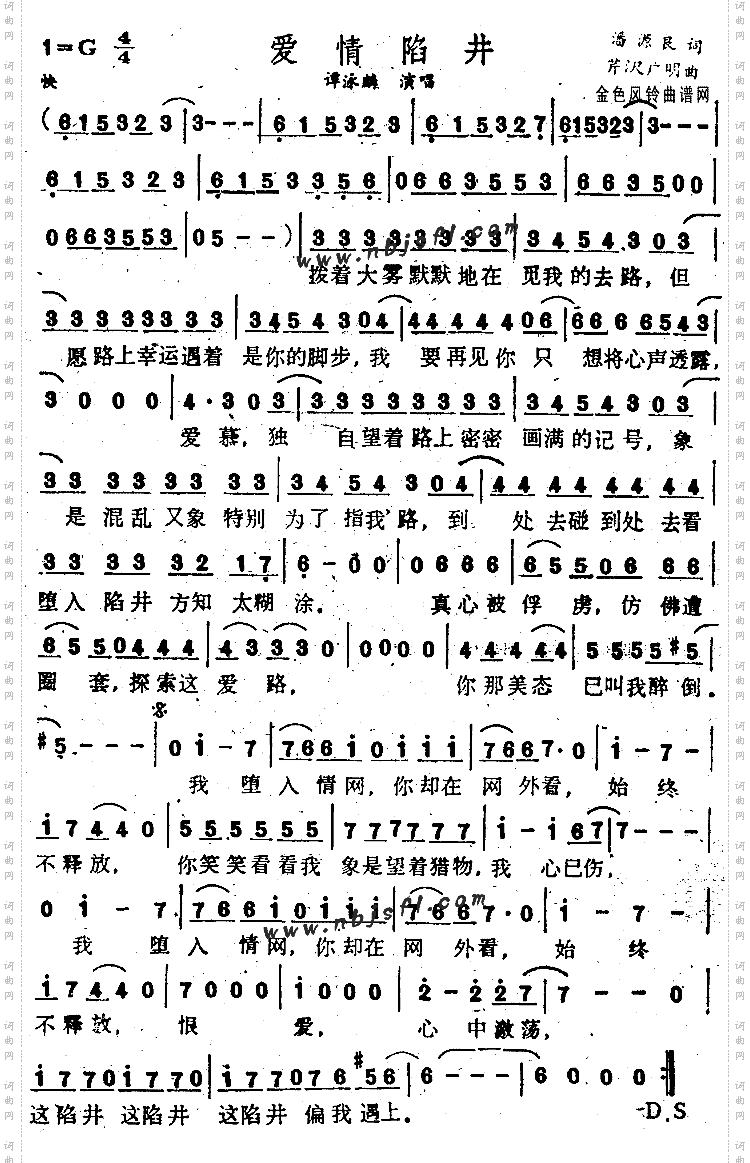 1=G 4/4 爱情陷井 潘源民词
快 谭泳麟 演唱 芹沢广明曲
金色风铃曲谱网
(6 1 5 3 2 3 | 3 - - - | 6 1 5 3 2 3 | 6 1 5 3 2 7 | 6 1 5 3 2 3 | 3 - - - |
6 1 5 3 2 3 | 6 1 5 3 3 5 6 | 0 6 6 3 5 5 3 | 6 6 3 5 0 0 |
0 6 6 3 5 5 3 | 0 5 - - ) | 3 3 3 3 3 3 3 3 | 3 4 5 4 3 0 3 |
www.nbjsfl.com
拨着大雾默默地在 觅我的去路,但
3 3 3 3 3 3 3 3 | 3 4 5 4 3 0 4 | 4 4 4 4 4 0 6 | 6 6 6 6 5 4 3 |
愿路上幸运遇着 是你的脚步,我 要再见你 只 想将心声透露,
3 0 0 0 | 4 · 3 0 3 | 3 3 3 3 3 3 3 3 | 3 4 5 4 3 0 3 |
爱慕,独 自望着路上密密 画满的记号,象
3 3 3 3 3 3 3 3 | 3 4 5 4 3 0 4 | 4 4 4 4 4 4 4 4 |
是 混乱又象特别 为了指我路,到 处去碰到处去看
3 3 3 3 3 2 1 7 | 6 - 0 0 | 0 6 6 6 6 | 6 5 5 0 6 6 6 |
堕入陷井方知太糊 涂. 真心被俘 虏,仿佛遭
6 5 5 0 4 4 4 | 4 3 3 3 0 | 0 0 0 0 | 4 4 4 4 4 | 5 5 5 5 #5 |
圈套,探索这爱路, 你那美态 已叫我醉倒.
#5 - - - | 0 i - 7 | 7 6 6 i 0 i i i | 7 6 6 7 · 0 | i - 7 - |
我 堕入情网,你却在网外看, 始 终
i 7 4 4 0 | 5 5 5 5 5 5 | 7 7 7 7 7 7 | i - i 6 7 | 7 - - - |
不释放, 你笑笑看看我 象是望着猎物,我 心已伤,
0 i - 7 | 7 6 6 i 0 i i i | 7 6 6 7 · 0 | i - 7 - |
www.nbjsfl.com
我 堕入情网,你却在网 外看, 始 终
i 7 4 4 0 | 7 0 0 0 | 4 0 0 0 | 2 - 2 2 7 | 7 - - 0 |
不释放, 恨 爱, 心 中激荡,
i 7 7 0 i 7 7 0 | i 7 7 0 7 6 #5 6 | 6 - - - | 6 0 0 0 :|
这陷井 这陷井 这陷井 偏我遇上. D.S
词曲网